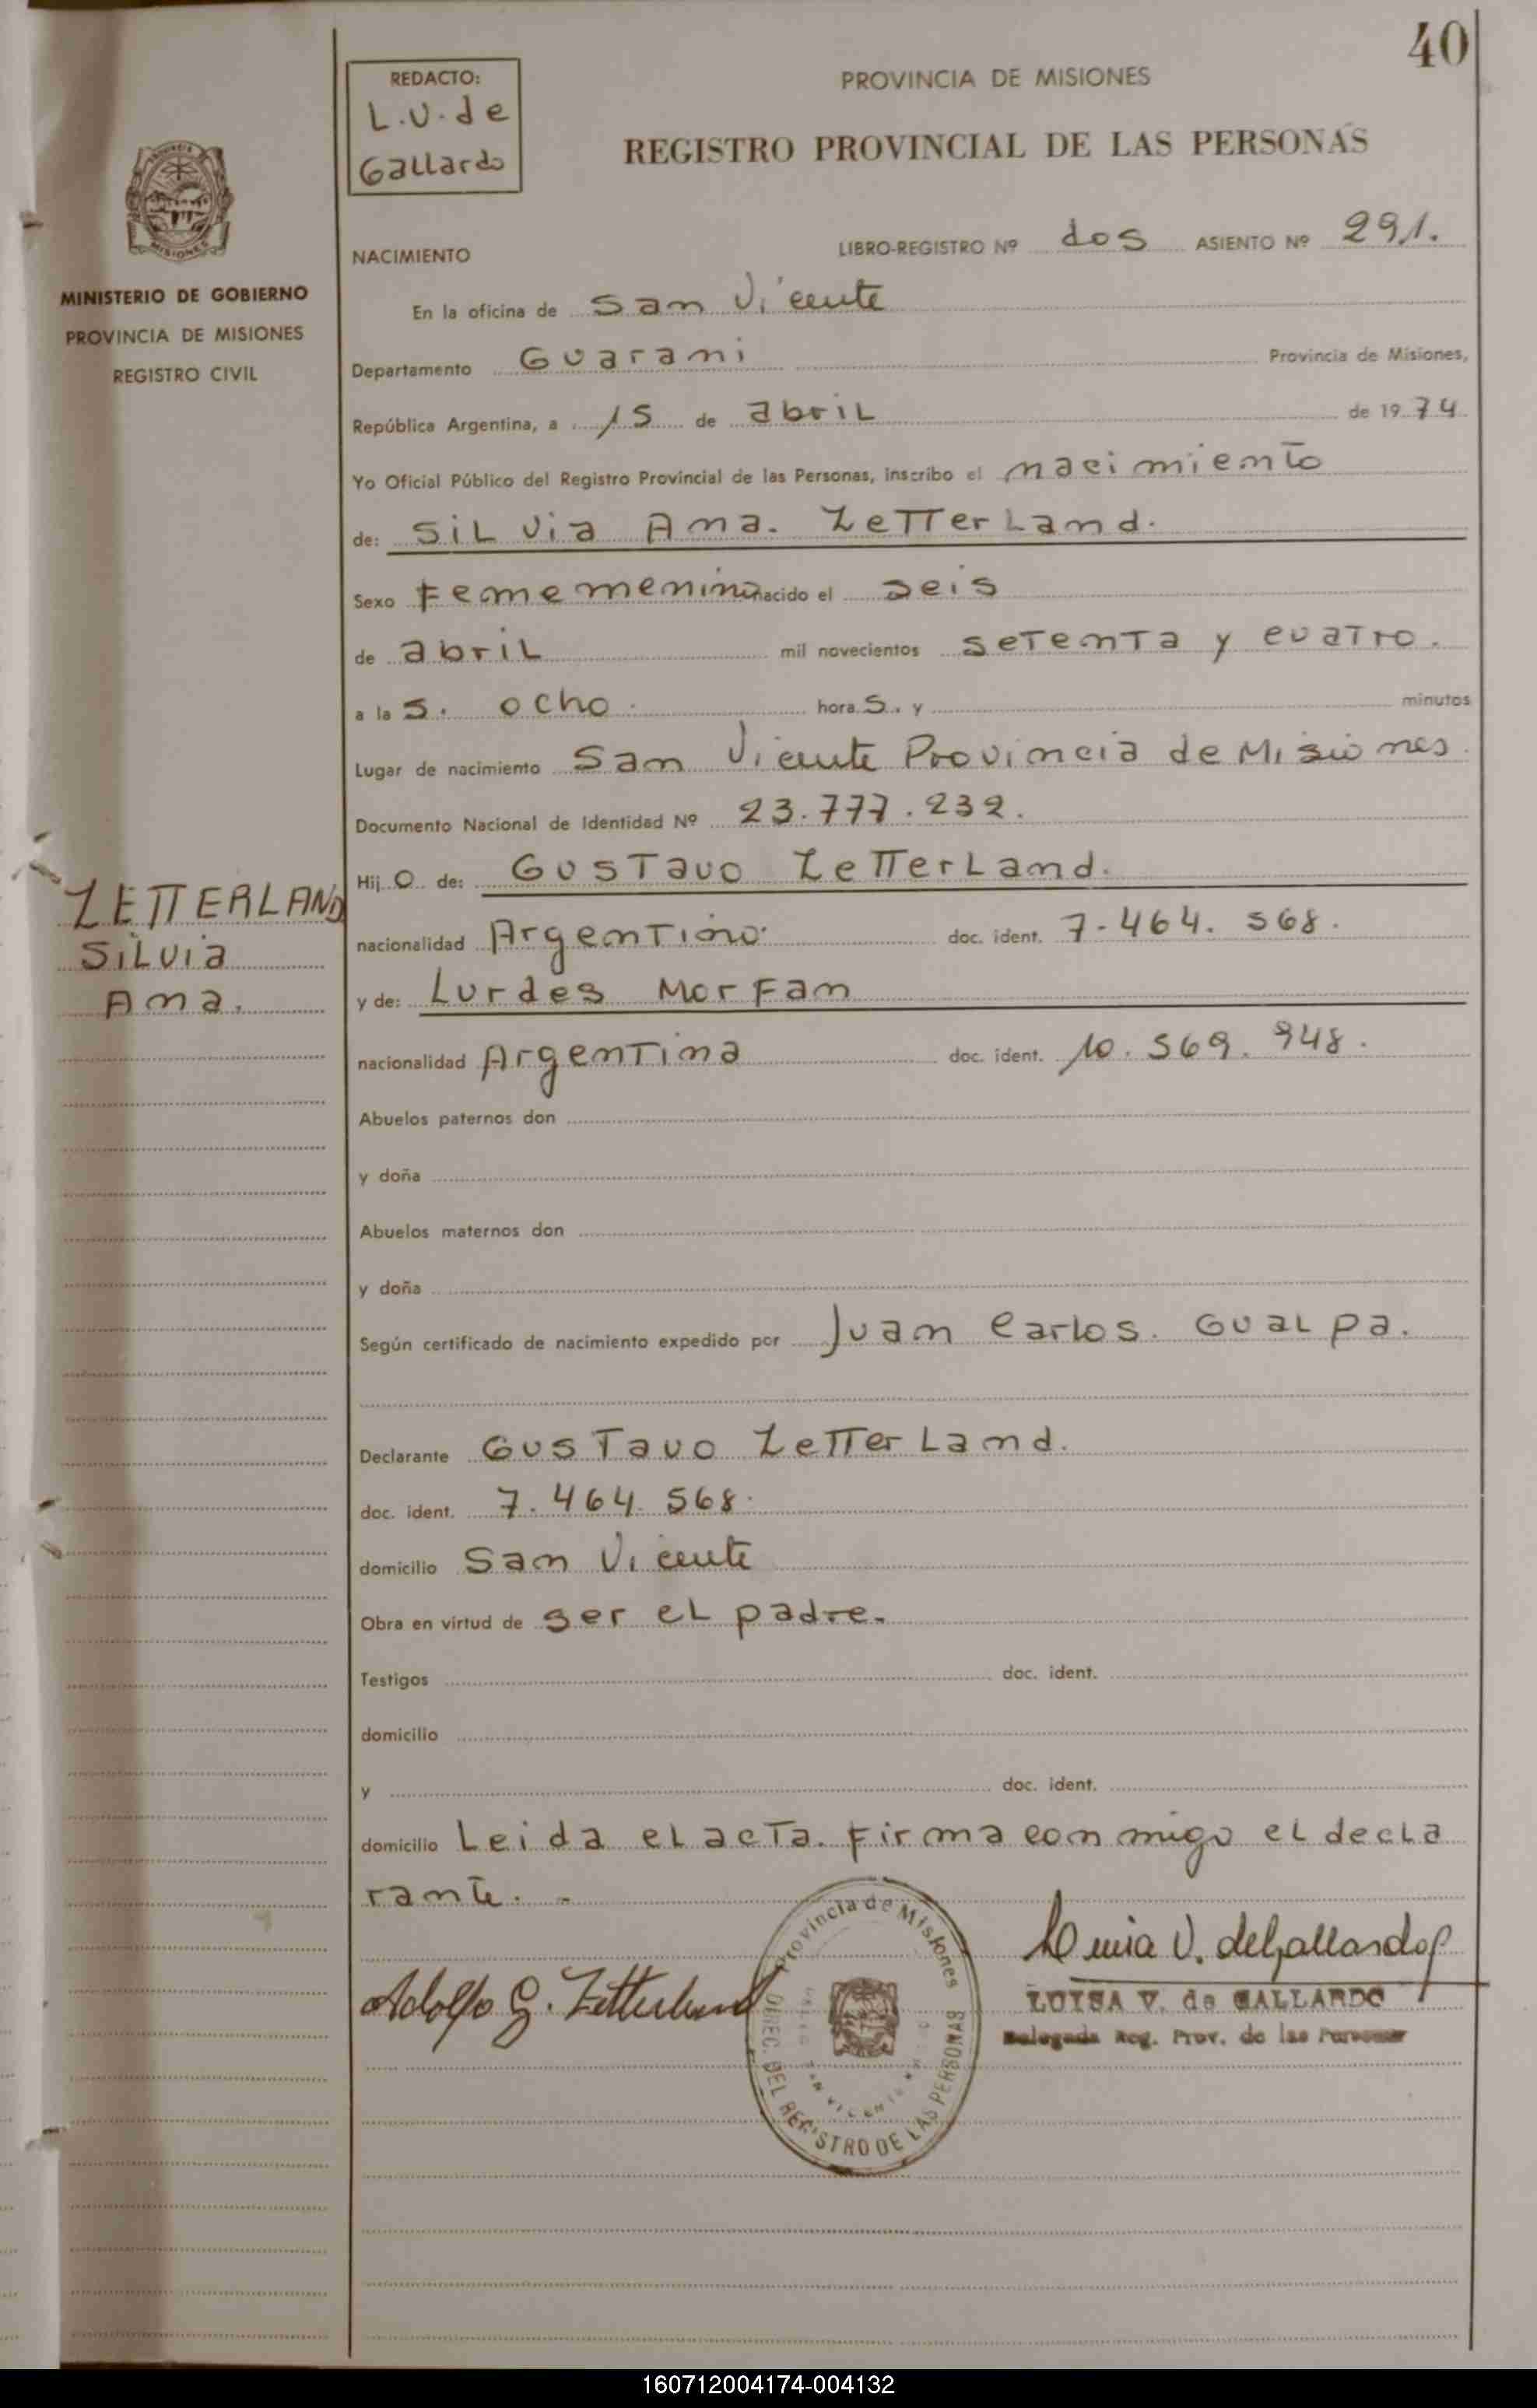 40
REDACTO:
L.V. de
Gallardo
PROVINCIA DE MISIONES
REGISTRO PROVINCIAL DE LAS PERSONAS
MISIONES
MINISTERIO DE GOBIERNO
PROVINCIA DE MISIONES
REGISTRO CIVIL
NACIMIENTO LIBRO-REGISTRO Nº dos ASIENTO Nº 291.
En la oficina de San Vicente
Departamento Guarani Provincia de Misiones,
República Argentina, a 15 de abril de 1974
Yo Oficial Público del Registro Provincial de las Personas, inscribo el nacimiento
de: Silvia Ana. Zetterland.
Sexo Fememenino nacido el seis
de abril mil novecientos setenta y cuatro.
a la s. ocho. hora s. y minutos
Lugar de nacimiento San Vicente Provincia de Misiones.
Documento Nacional de Identidad Nº 23.777.232.
Hij o de: Gustavo Zetterland.
nacionalidad Argentino. doc. ident. 7.464.568.
y de: Lurdes Morfan
nacionalidad Argentina doc. ident. 10.569.948.
ZETTERLAND
Silvia
Ana.
Abuelos paternos don
y doña
Abuelos maternos don
y doña
Según certificado de nacimiento expedido por Juan Carlos. Gualpa.
Declarante Gustavo Zetterland.
doc. ident. 7.464.568.
domicilio San Vicente
Obra en virtud de ser el padre.
Testigos doc. ident.
domicilio
y doc. ident.
domicilio Leida el acta. Firma con migo el decla
rante. -
Adolfo G. Zetterlund
Provincia de Misiones
DIREC. DEL REGISTRO DE LAS PERSONAS
SAN VICENTE
Luisa V. de Gallardo
LUISA V. de GALLARDO
Delegada Reg. Prov. de las Personas
160712004174-004132